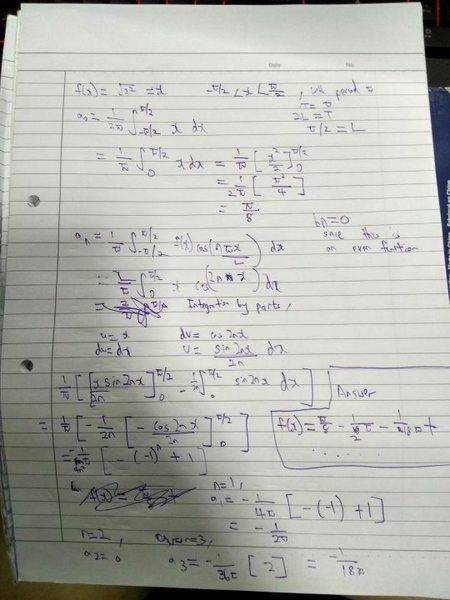 Date No.
f(x) = √x² = x -π/2 < x < π/2, with period π
T = π
2L = T
π/2 = L
a₀ = 1/2π ∫_{-π/2}^{π/2} x dx
= 1/π ∫_0^{π/2} x dx = 1/π [x²/2]_0^{π/2}
= 1/2π [π²/4]
= π/8
bn = 0
since this is
an even function
aₙ = 1/π ∫_{-π/2}^{π/2} f(x) cos(nπx/L) dx
= ∫_0^{π/2} x cos(2nx) dx
Integration by parts,
u = x dv = cos 2nx
du = dx v = sin 2nx/2n dx
1/π [[x sin 2nx/2n]_0^{π/2} - ∫_0^{π/2} sin 2nx dx]
Answer
= 1/π [-1/2n [-cos 2nx/2n]_0^{π/2}]
f(x) = π/8 - 1/2π - 1/18π +
......
[-(-1)ⁿ + 1]
n=1,
a₁ = -1/4π [-(-1) + 1]
= -1/2π
n=2, n=3,
a₂ = 0 a₃ = -1/36π [2] = -1/18π